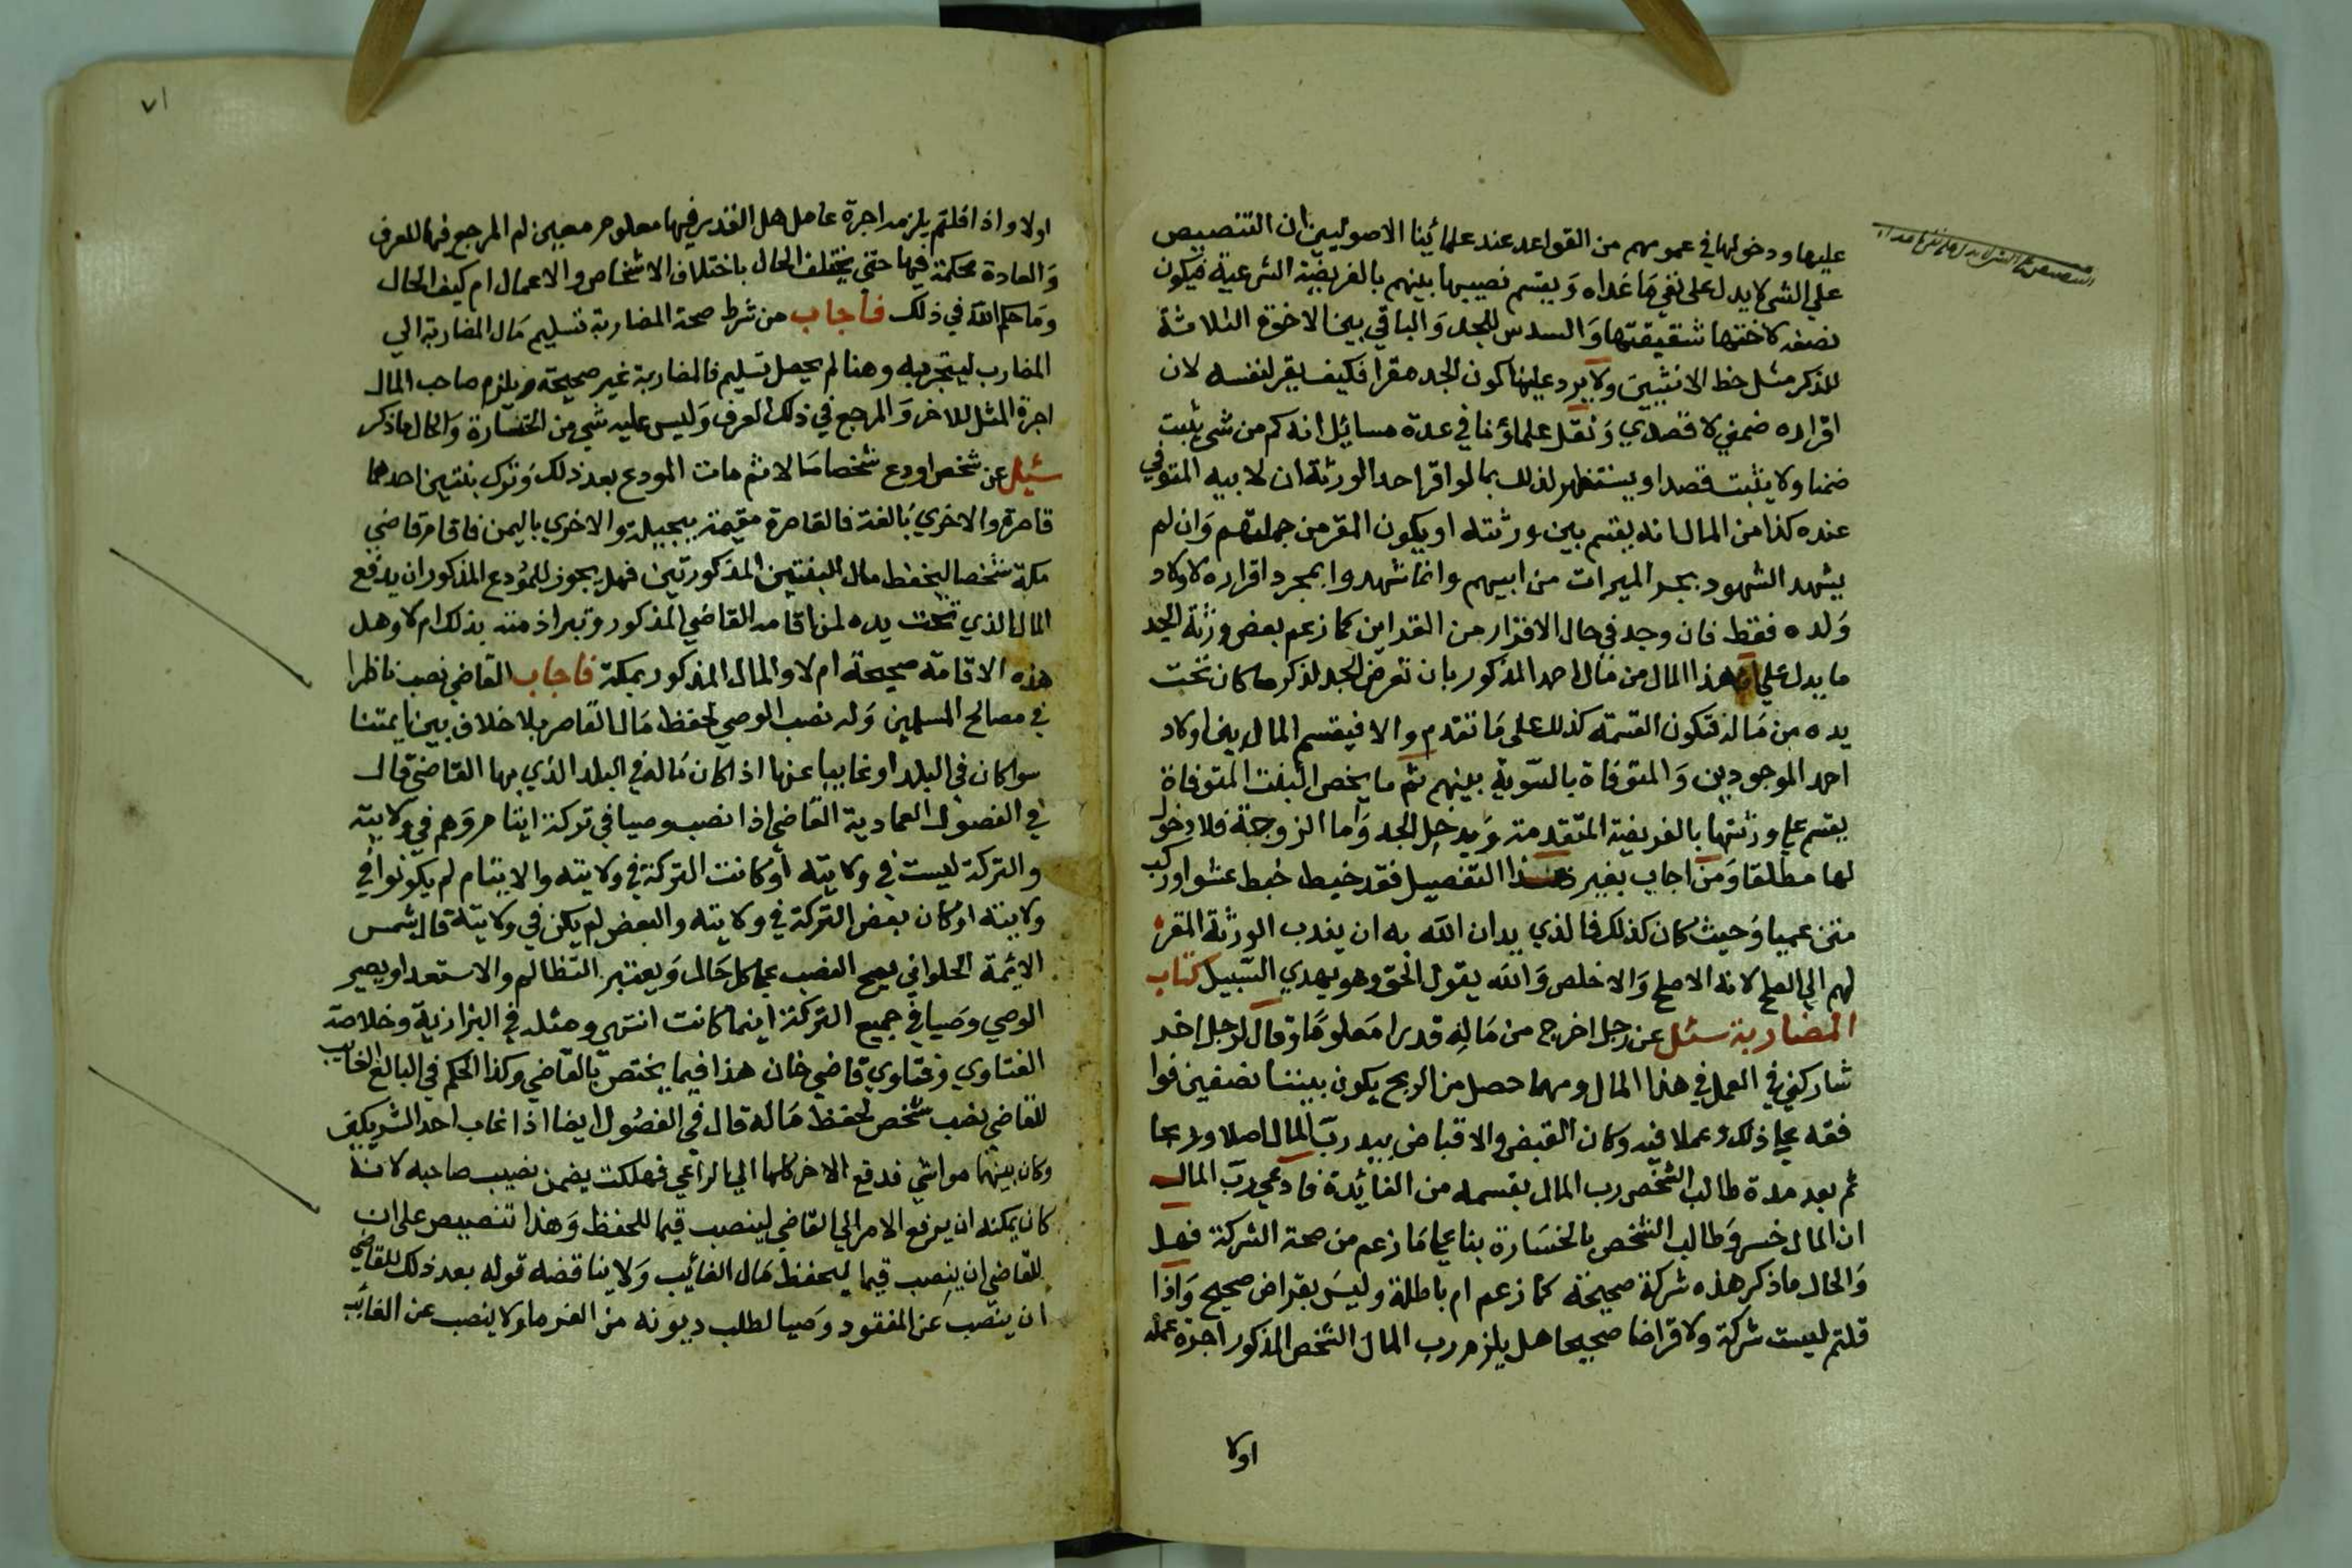 عليها ودخولها في عمومهم من القواعد عند علمائنا الاصوليين ان التنصيص
علي الشي لا يدل علي نفي ما عداه ويقسم نصيبها بينهم بالفريضة الشرعية فيكون
نصفه لاختها شقيقتها والسدس للجد والباقي بين الاخوة الثلاثة
للذكر مثل حظ الانثيين ولا يرد علينا كون الجد مقرا فكيف يقر لنفسه لان
اقراره ضمني لا قصدي ونقل علماؤنا في عدة مسائل انه كم من شي يثبت
ضمنا ولا يثبت قصدا ويستظهر لذلك بما لو اقر احد الورثة ان لابيه المتوفي
عنده كذا من المال انه يقسم بين ورثته او يكون المقر من جملتهم وان لم
يشهد الشهود بجر الميراث من ابيهم وانما شهدوا بمجرد اقراره لاولاد
ولده فقط فان وجد في حال الاقرار من القراين كما زعم بعض ورثة الجد
ما يدل علي ان هذا المال من مال احمد المذكور بان تعرض الجد لذكر ما كان تحت
يده من ماله فتكون القسمة كذلك علي ما تقدم والا فيقسم المال بين اولاد
احمد الموجودين والمتوفاة بالسوية بينهم ثم ما يخص البنت المتوفاة
يقسم علي ورثتها بالفريضة المتقدمة ويدخل الجد واما الزوجة فلا دخول
لها مطلقا ومن اجاب بغير هذا التفصيل فقد خبط خبط عشوا وركب
متن عميا وحيث كان كذلك فالذي يدان الله به ان يندب الورثة المقر
لهم الي الصلح لانه الاصلح والاخلص والله يقول الحق وهو يهدي السبيل كتاب
المضاربة سئل عن رجل اخرج من ماله قدرا معلوما وقال لرجل اخر
شاركني في العمل في هذا المال ومهما حصل من الربح يكون بيننا نصفين فوا
فقه علي ذلك وعملا فيه وكان القبض والاقباض بيد رب المال اصلا وربحا
ثم بعد مدة طالب الشخص رب المال بقسمه من الفائدة فادعي رب المال
ان المال خسر وطالب الشخص بالخسارة بنا علي ما زعم من صحة الشركة فهل
والحال ما ذكر هذه شركة صحيحة كما زعم ام باطلة وليس بقراض صحيح واذا
قلتم ليست شركة ولا قراضا صحيحا هل يلزم رب المال الشخص المذكور اجرة عمله
اولا
٧١
اولا واذا قلتم يلزمه اجرة عامل هل القدير فيها معلوم معين ام المرجع فيها للعرف
والعادة محكمة فيها حتي يختلف الحال باختلاف الاشخاص والاعمال ام كيف الحال
وما حكم الله في ذلك فاجاب من شرط صحة المضاربة تسليم مال المضاربة الي
المضارب ليتجر به وهنا لم يحصل تسليم فالمضاربة غير صحيحة ويلزم صاحب المال
اجرة المثل للاخر والمرجع في ذلك العرف وليس عليه شي من الخسارة والحال ما ذكر
سئل عن شخص اودع شخصا مالا ثم مات المودع بعد ذلك وترك بنتين احدهما
قاصرة والاخري بالغة فالقاصرة مقيمة ببجيلة والاخري باليمن فاقام قاضي
مكة شخصا ليحفظ مال البنتين المذكورتين فهل يجوز للمودع المذكور ان يدفع
المال الذي تحت يده لمن اقامه القاضي المذكور وتبرا ذمته بذلك ام لا وهل
هذه الاقامة صحيحة ام لا والمال المذكور بمكة فاجاب القاضي نصب ناظرا
في مصالح المسلمين وله نصب الوصي لحفظ مال القاصر بلا خلاف بين ايمتنا
سوا كان في البلد او غايبا عنها اذا كان ماله في البلد الذي بها القاضي قال
في الفصول العمادية القاضي اذا نصب وصيا في تركة ايتام وهم في ولايته
والتركة ليست في ولايته او كانت التركة في ولايته والايتام لم يكونوا في
ولايته او كان بعض التركة في ولايته والبعض لم يكن في ولايته قال شمس
الايمة الحلواني يصح النصب علي كل حال ويعتبر التظالم والاستعدا ويصير
الوصي وصيا في جميع التركة اينما كانت انتهي ومثله في البزازية وخلاصة
الفتاوي وفتاوي قاضي خان هذا فيما يختص بالقاضي وكذا الحكم في البالغ الغايب
للقاضي نصب شخص لحفظ ماله قال في الفصول ايضا اذا غاب احد الشريكين
وكان بينهما مواشي فدفع الاخر كلها الي الراعي فهلكت يضمن نصيب صاحبه لانه
كان يمكنه ان يرفع الامر الي القاضي لينصب قيما للحفظ وهذا تنصيص علي ان
للقاضي ان ينصب قيما ليحفظ مال الغائب ولا يناقضه قوله بعد ذلك للقاضي
ان ينصب عن المفقود وصيا لطلب ديونه من الغرما ولا ينصب عن الغائب